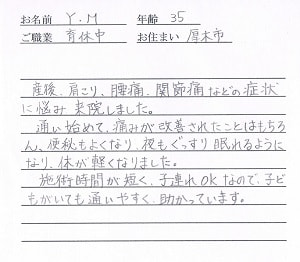 お名前 Y.M 年齢 35
ご職業 育休中 お住まい 厚木市
産後、肩こり、腰痛、関節痛などの症状
に悩み来院しました。
通い始めて、痛みが改善されたことはもちろ
ん、便秘もよくなり、夜もぐっすり眠れるように
なり、体が軽くなりました。
施術時間が短く、子連れOKなので、子ど
もがいても通いやすく、助かっています。